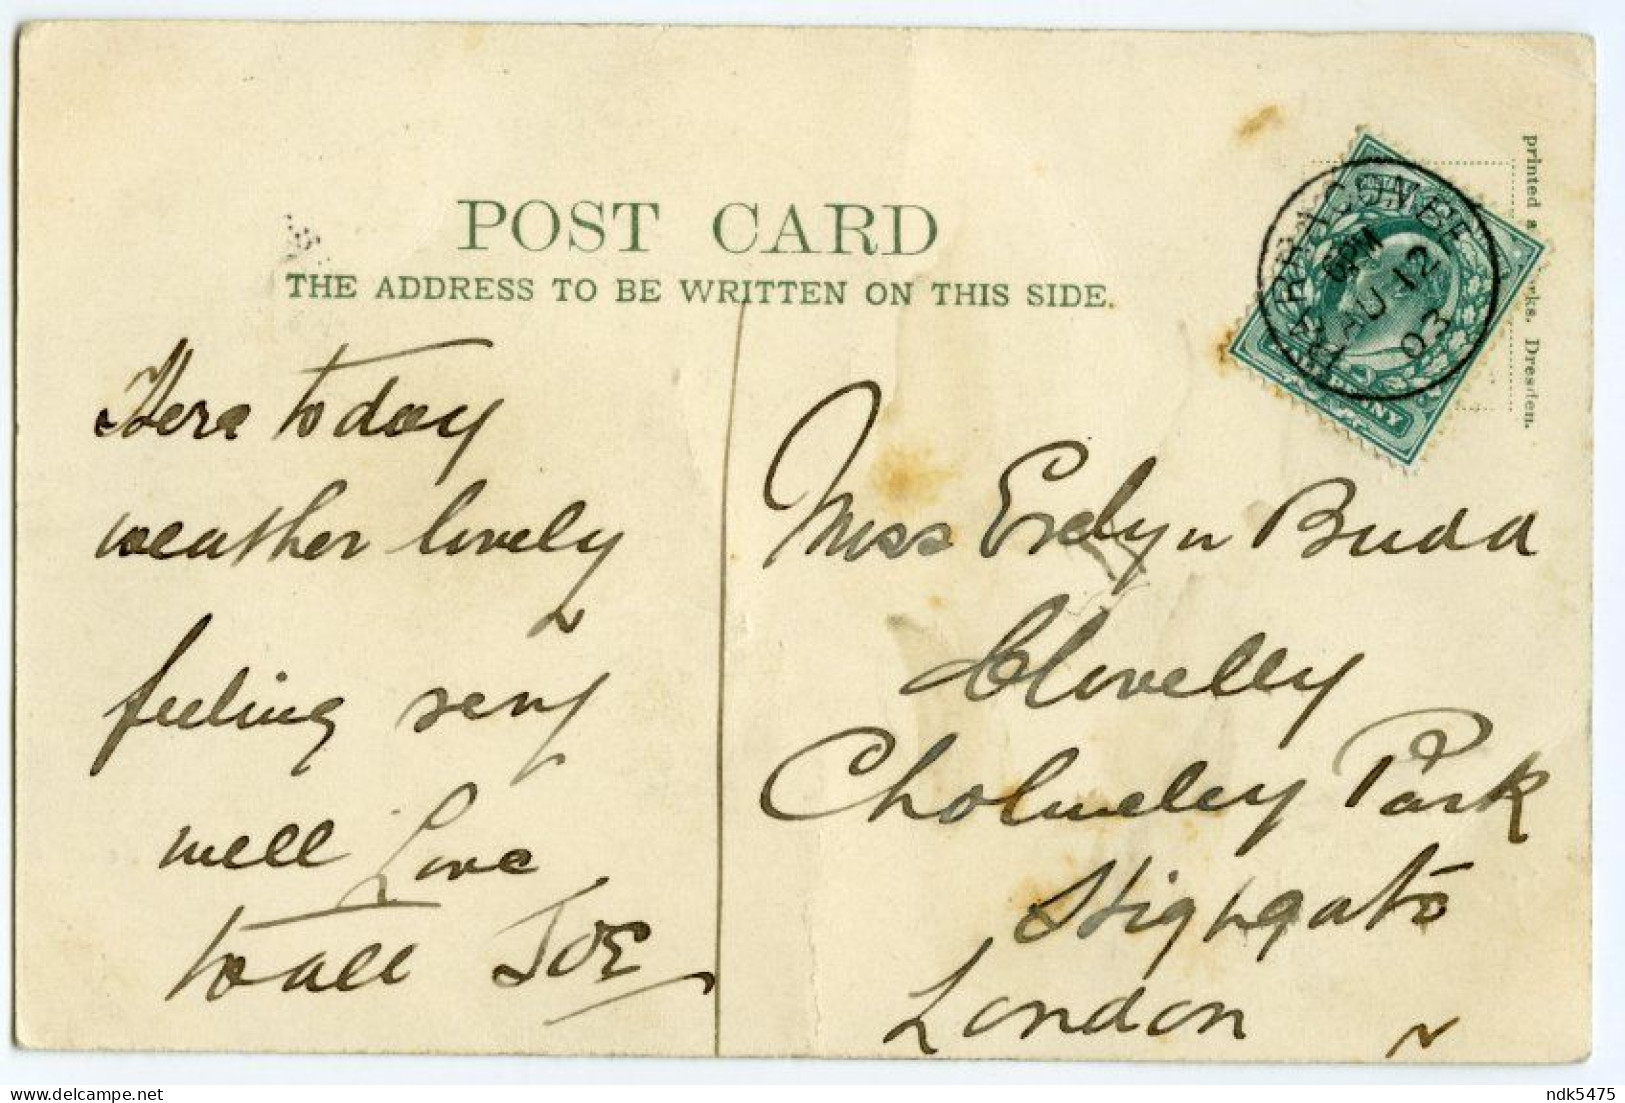 POST CARD
THE ADDRESS TO BE WRITTEN ON THIS SIDE.
printed a rks. Dresden.
BARRACOMBE
6 PM
AU 12
03
HALFPENNY
Here today
weather lovely
feeling very
well Love
to all JOE
Miss Evelyn Budd
Clovelly
Cholmeley Park
Highgate
London
N
ndk5475